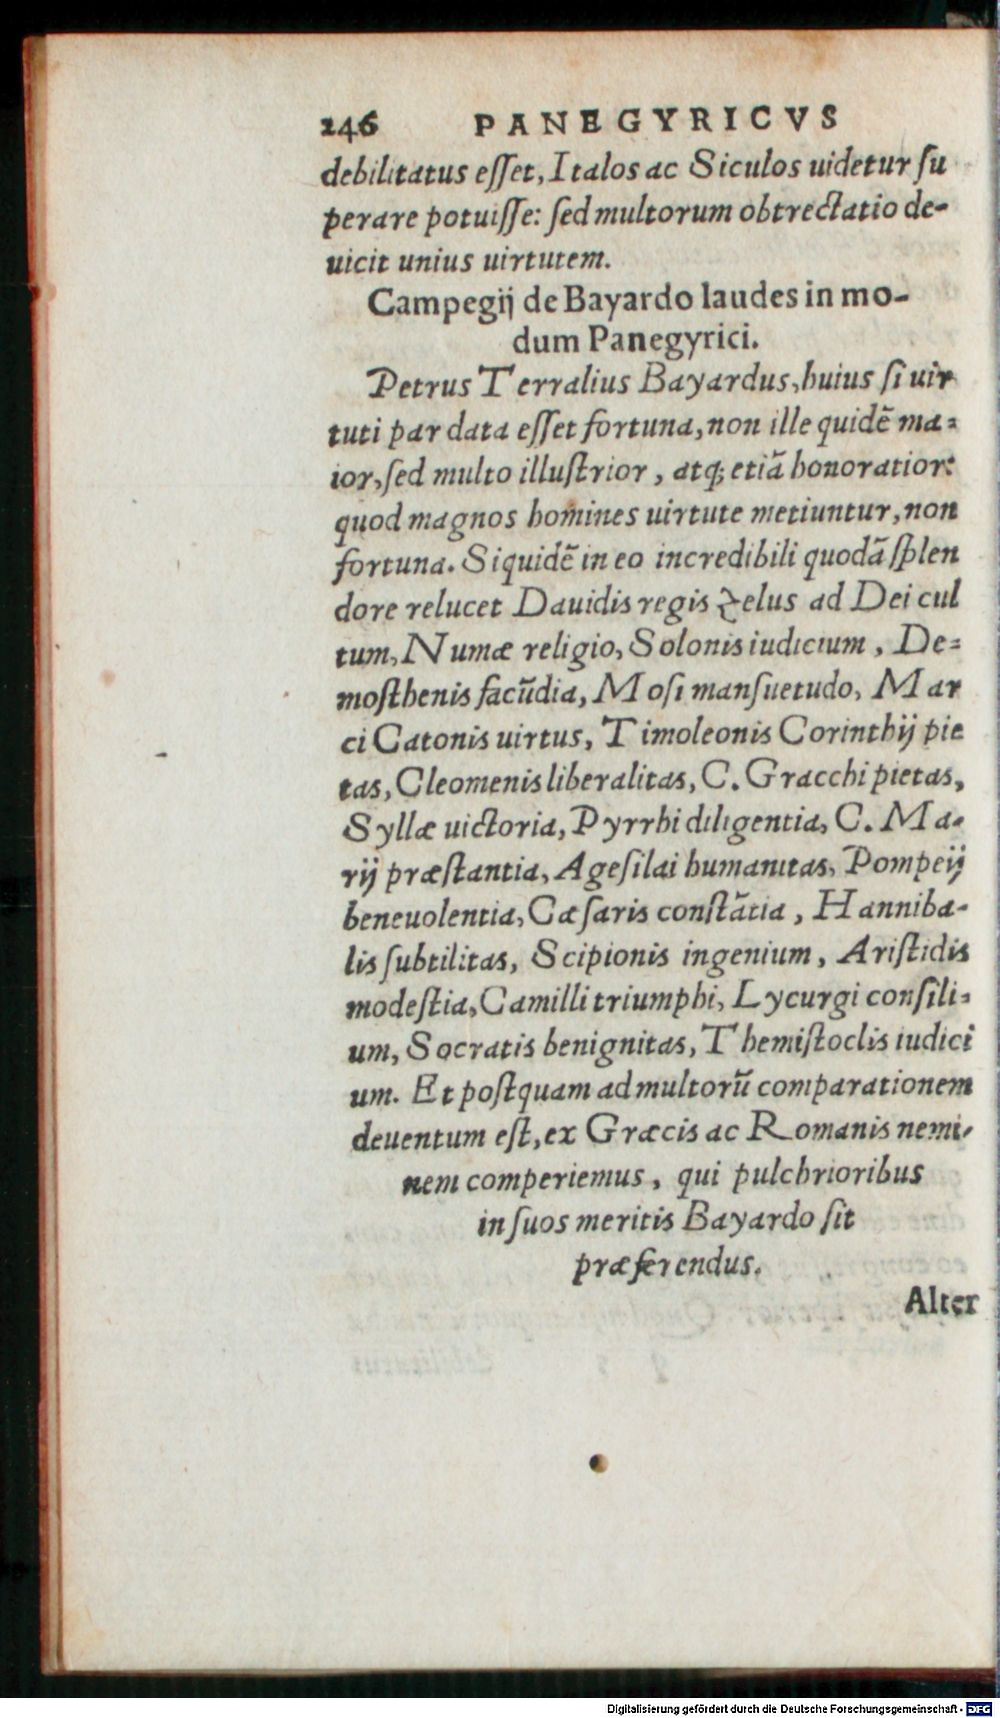 246 PANEGYRICVS
debilitatus eſſet, Italos ac Siculos uidetur ſu
perare potuiſſe: ſed multorum obtrectatio de-
uicit unius uirtutem.
Campegij de Bayardo laudes in mo-
dum Panegyrici.
Petrus Terralius Bayardus, huius ſi uir
tuti par data eſſet fortuna, non ille quidē ma-
ior, ſed multo illuſtrior, atq; etiā honoratior:
quod magnos homines uirtute metiuntur, non
fortuna. Siquidē in eo incredibili quodā ſplen
dore relucet Dauidis regis zelus ad Dei cul
tum, Numæ religio, Solonis iudicium, De-
moſthenis facūdia, Moſi manſuetudo, Mar
ci Catonis uirtus, Timoleonis Corinthij pie
tas, Cleomenis liberalitas, C. Gracchi pietas,
Syllæ uictoria, Pyrrhi diligentia, C. Ma-
rij præſtantia, Ageſilai humanitas, Pompeij
beneuolentia, Cæſaris conſtātia, Hanniba-
lis ſubtilitas, Scipionis ingenium, Ariſtidis
modeſtia, Camilli triumphi, Lycurgi conſili-
um, Socratis benignitas, Themiſtoclis iudici
um. Et poſtquam ad multorū comparationem
deuentum eſt, ex Græcis ac Romanis nemi-
nem comperiemus, qui pulchrioribus
in ſuos meritis Bayardo ſit
præferendus.
Alter
Digitalisierung gefördert durch die Deutsche Forschungsgemeinschaft - DFG